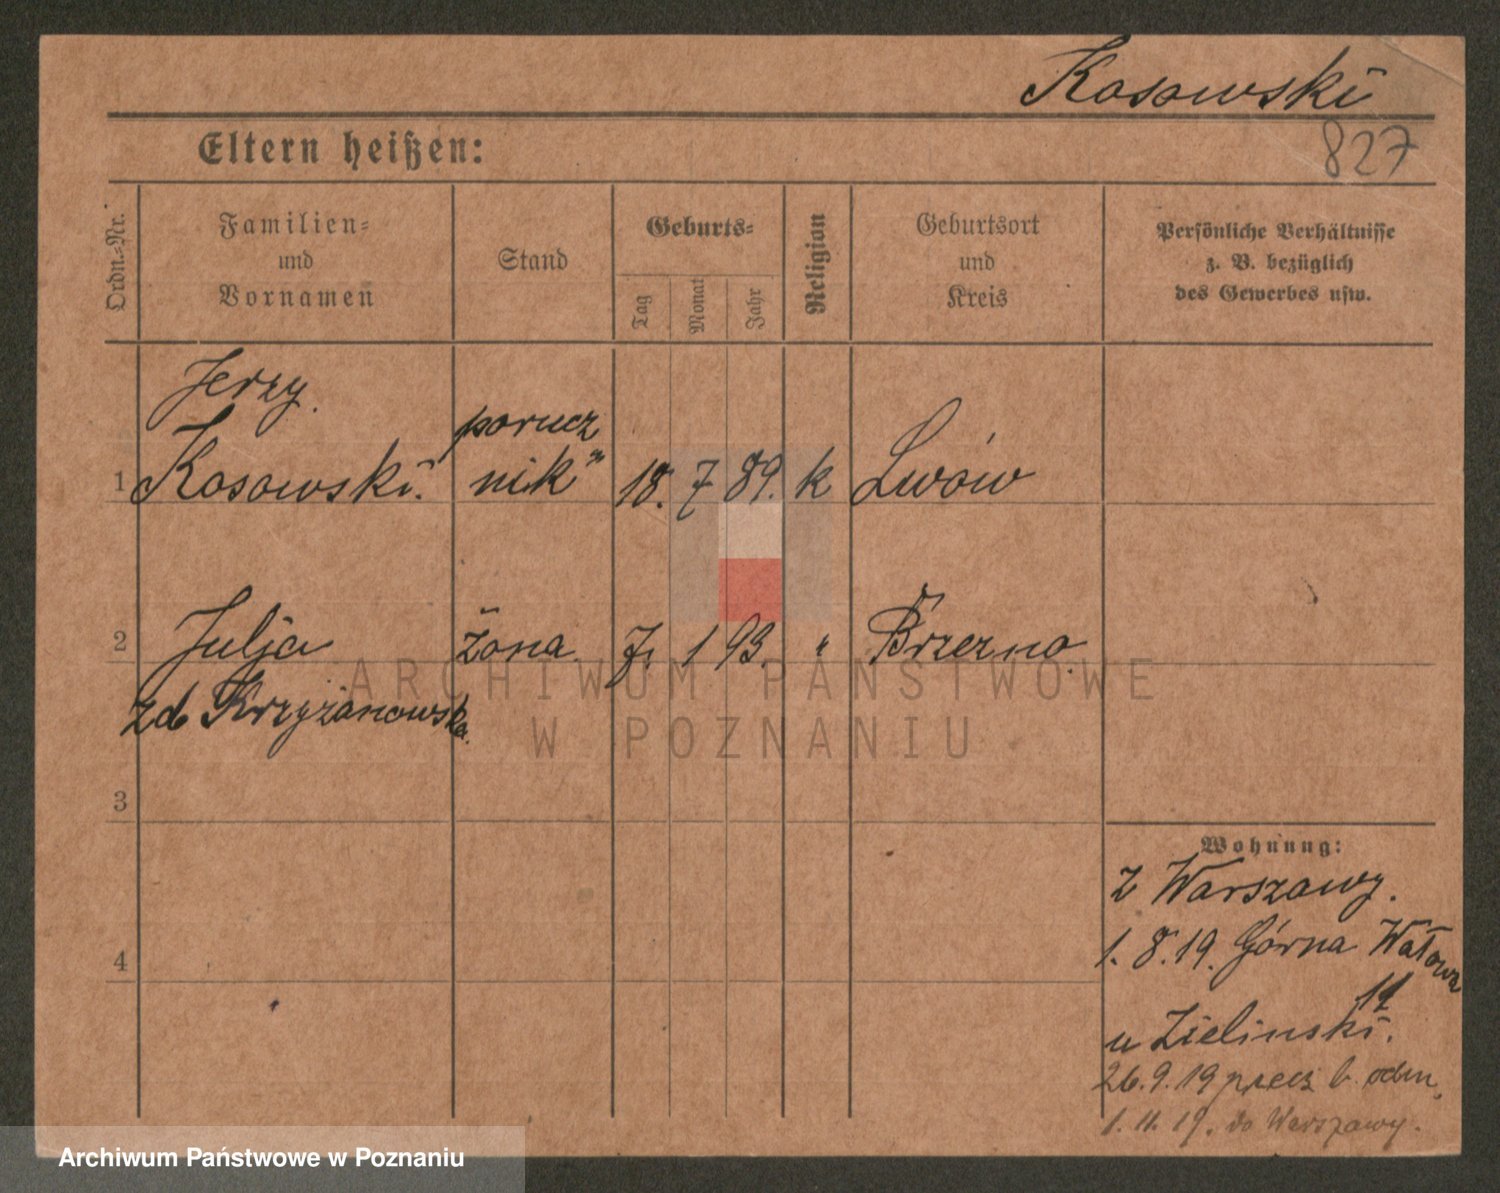 Kosowski
Eltern heißen:
827
Ordn.-Nr.
Familien-
und
Vornamen
Stand
Geburts-
Tag
Monat
Jahr
Religion
Geburtsort
und
Kreis
Persönliche Verhältnisse
z. B. bezüglich
des Gewerbes usw.
Jerzy.
porucz
1 Kosowski. nik" 18. 7 89. k Lwów
2 Julja żona 7. 1 93. " Brzezno
zd Krzyżanowska.
ARCHIWUM PAŃSTWOWE
W POZNANIU
3
Wohnung:
z Warszawy.
1. 8. 19. Górna Wałowa
4
u Zielinski.
26. 9. 19 precz b. odm.
1. 11. 19. do Warszawy.
Archiwum Państwowe w Poznaniu